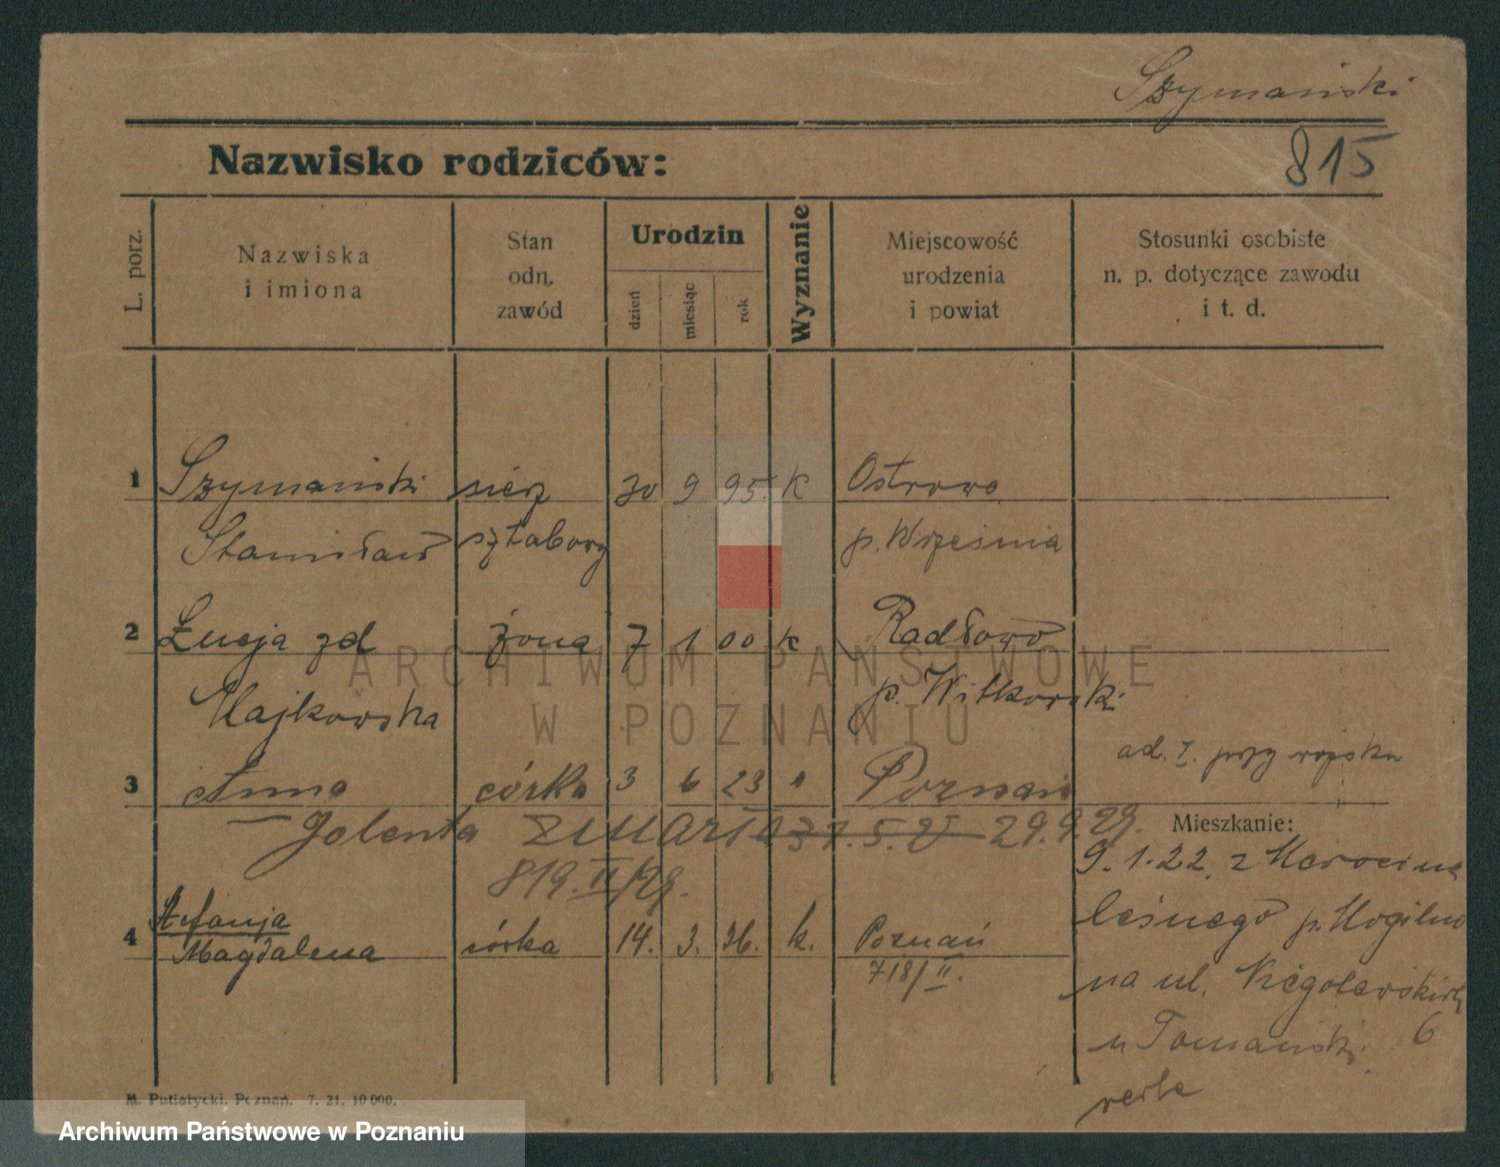 Szymański
Nazwisko rodziców:
815
L. porz.
Nazwiska
i imiona
Stan
odn.
zawód
Urodzin
dzień
miesiąc
rok
Wyznanie
Miejscowość
urodzenia
i powiat
Stosunki osobiste
n. p. dotyczące zawodu
i t. d.
1 Szymański sierż 30 9 95. K Ostrowo
Stanisław sztabowy p. Września
2 Łucja zd żona 7 1 00 K Radłowo
Majkowska p. Witkowski
ad. 1. przy wojsku
3 Anna córka 3 6 23 " Poznań
Jolenta ZMARŁA 29.9.29.
819.II/29.
Mieszkanie:
9.1.22. z
leśnego p. Mogilno
na ul. 
u Tomański 6
4 Stefanja
Magdalena córka 14. 3. 36. k. Poznań
718/II.
M. Putiatycki, Poznań. 7. 21. 10 000.
ARCHIWUM PAŃSTWOWE
W POZNANIU
Archiwum Państwowe w Poznaniu